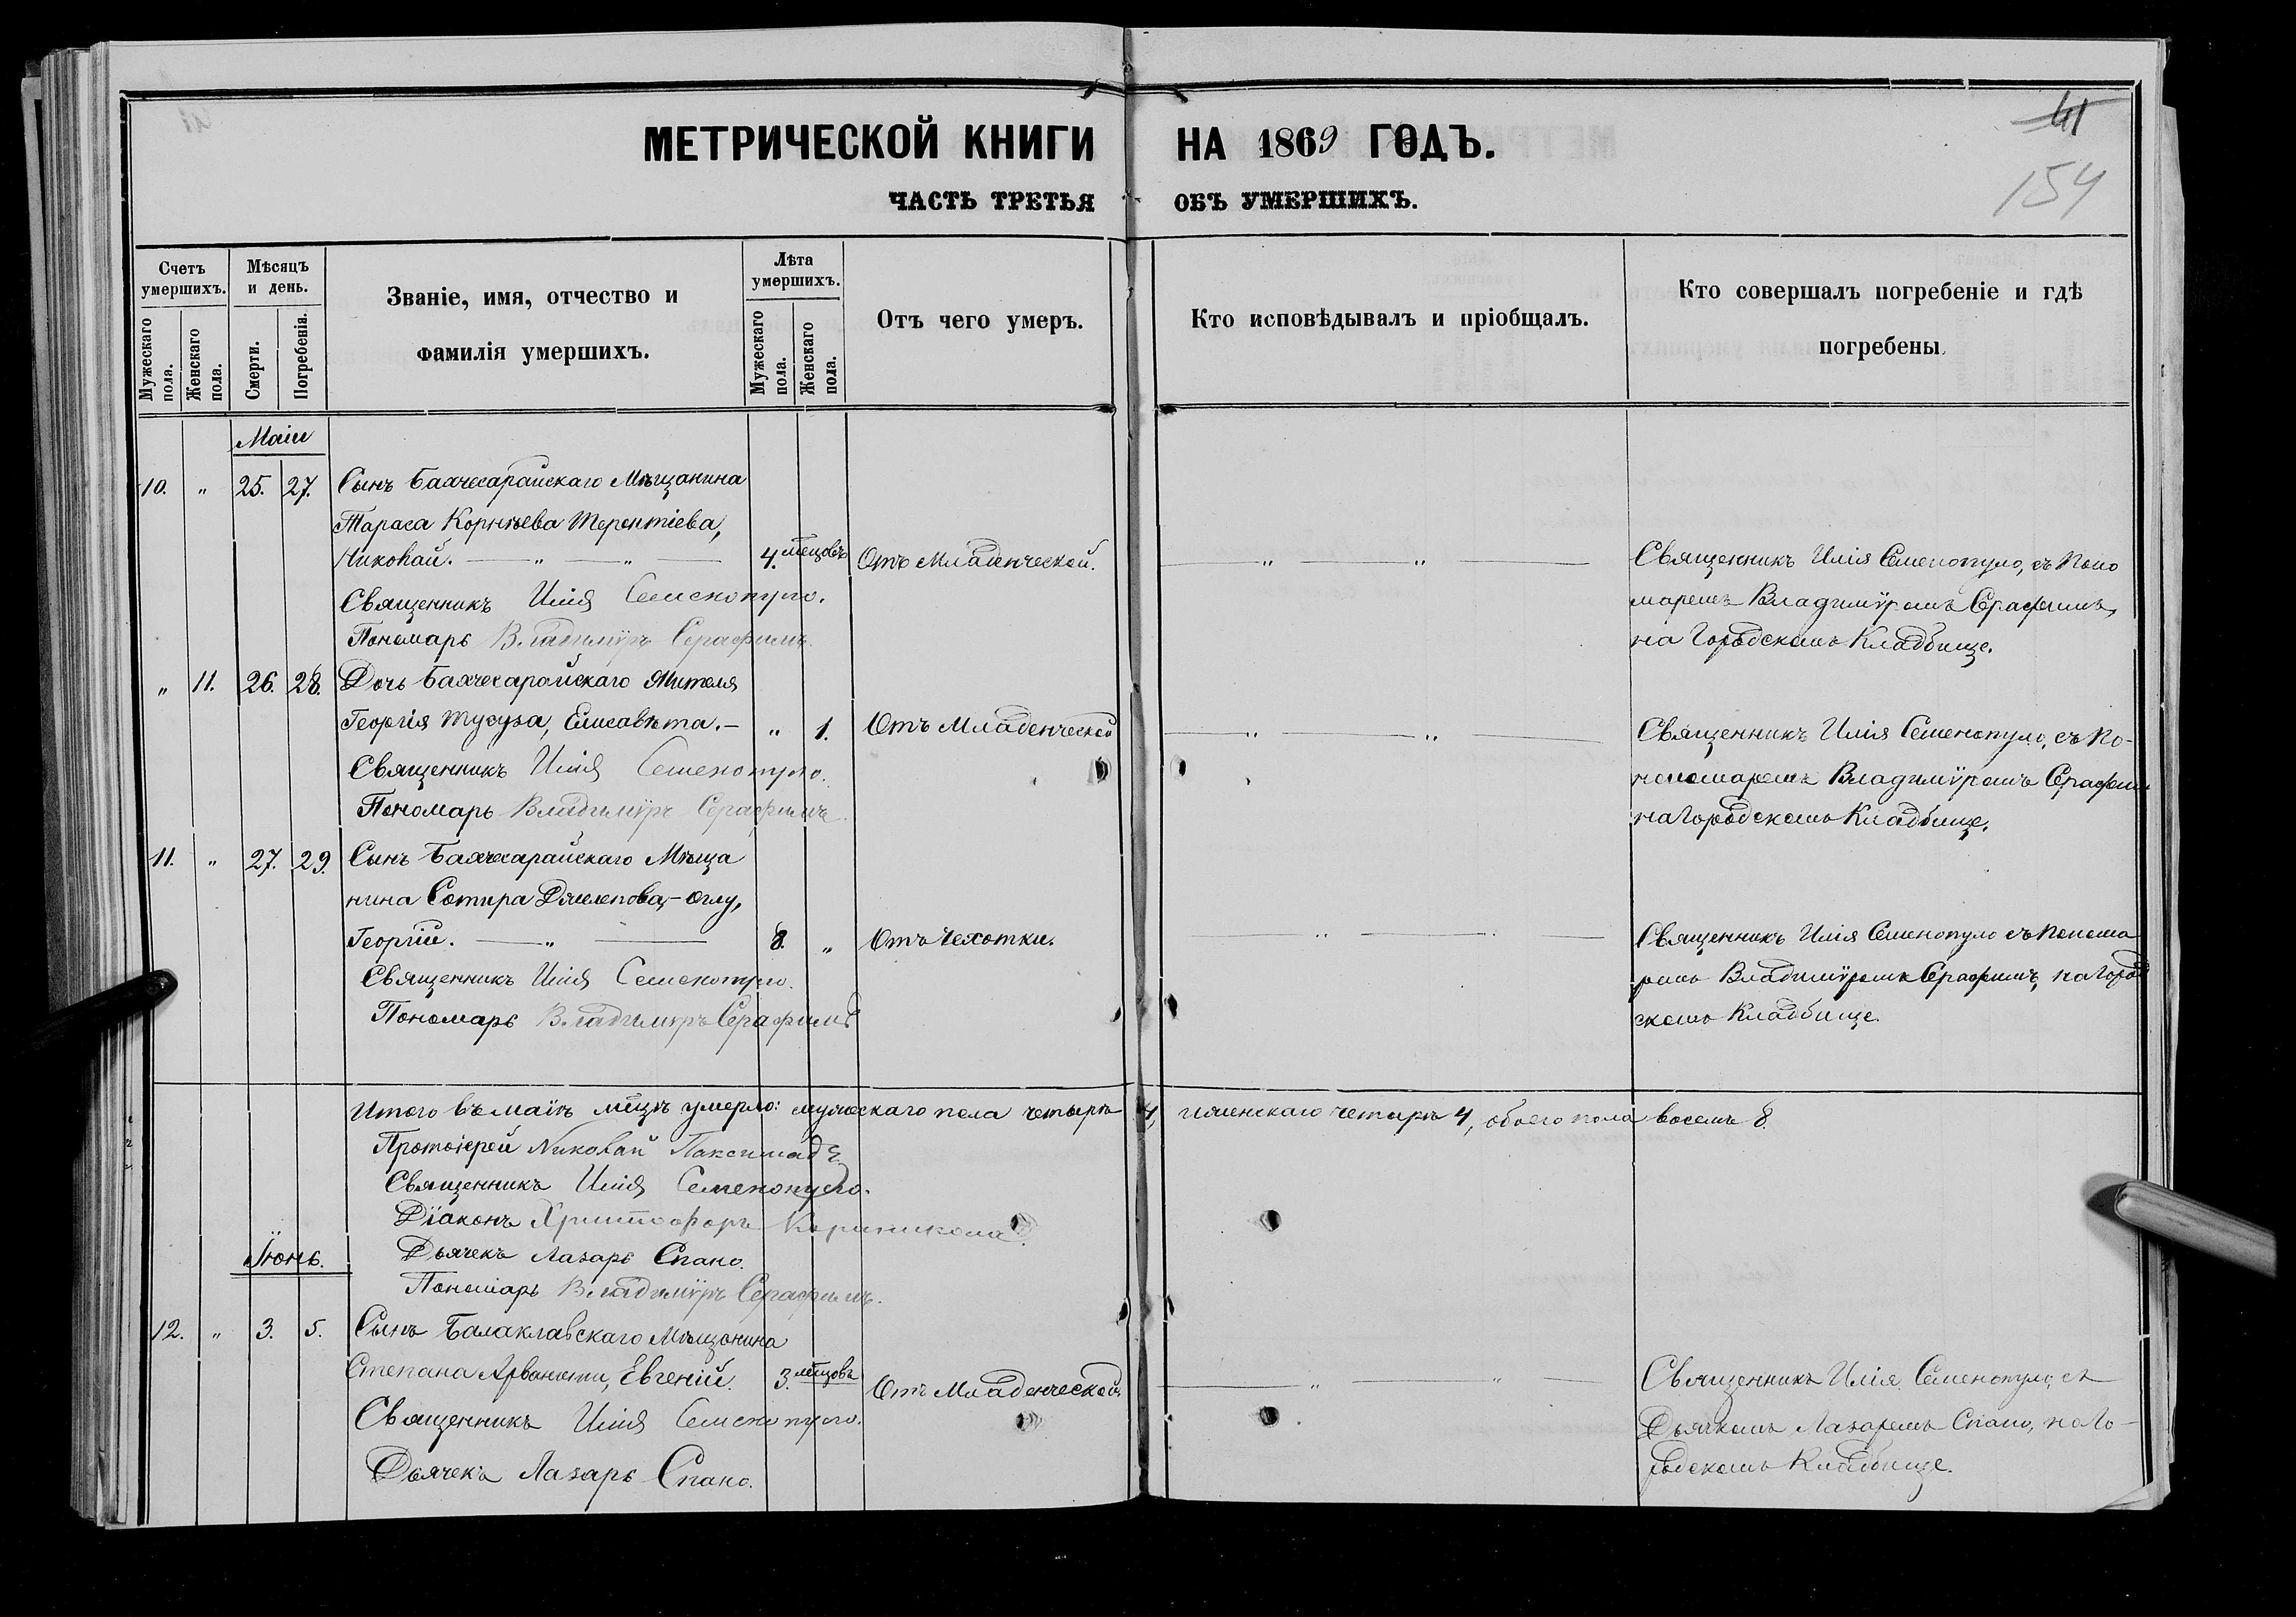 41
154
МЕТРИЧЕСКОЙ КНИГИ НА 1869 ГОДЪ.
ЧАСТЬ ТРЕТЬЯ ОБЪ УМЕРШИХЪ.
Счетъ умершихъ.
Мужескаго пола.
Женскаго пола.
Мѣсяцъ и день.
Смерти.
Погребенія.
Званіе, имя, отчество и
фамилія умершихъ.
Лѣта умершихъ.
Мужескаго пола.
Женскаго пола.
Отъ чего умеръ.
Кто исповѣдывалъ и пріобщалъ.
Кто совершалъ погребеніе и гдѣ
погребены.
Маіи
10. " 25. 27. Сынъ Бахчесарайскаго Мѣщанина
Тараса Корнѣева Терентіева,
Николай. — " — " — 4. мѣцовъ Отъ Младенческой. — " — " — Священникъ Илія Семенопуло, съ Поно
Священникъ Илія Семенопуло. маремъ Владимѵромъ Серафимъ,
Пономарь Владимѵръ Серафимъ. на Городскомъ Кладбище.
" 11. 26. 28. Дочь Бахчесарайскаго Жителя
Георгія Тусуза, Елисавѣта. — " 1. Отъ Младенческой — " — " — Священникъ Илія Семенопуло, съ По-
Священникъ Илія Семенопуло. нономаремъ Владимѵромъ Серафим
Пономарь Владимѵръ Серафимъ на Городскомъ Кладбище.
11. " 27. 29. Сынъ Бахчесарайскаго Мѣща
нина Сотира оглу,
Георгій. — " — 8. " Отъ Чехотки. — " — " — Священникъ Илія Семенопуло съ Понома
Священникъ Илія Семенопуло. ремъ Владимѵромъ Серафимъ, на Город
Пономарь Владимѵръ Серафимъ скомъ Кладбище.
Итого въ маіѣ мѣцѣ умерло: мужескаго пола четыре 4, и женскаго четыре 4, обоего пола восемь 8.
Протоіерей Николай
Священникъ Илія Семенопуло.
Діаконъ Христофоръ
Іюнь. Дьячекъ Лазарь Спано.
Пономарь Владимѵръ Серафимъ.
12. " 3. 5. Сынъ Балаклавскаго Мѣщанина
Степана Арваніти, Евгеній. 3. мѣцовъ Отъ Младенческой. — " — " — Священникъ Илія Семенопуло, съ
Священникъ Илія Семенопуло. Дьячкомъ Лазаремъ Спано, на Го-
Дьячекъ Лазарь Спано. родскомъ Кладбище.